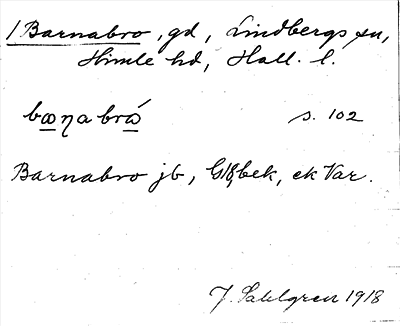 1 Barnabro, gd, Lindbergs sn,
Himle hd, Hall. l.
bɷŋabrɷ́ s. 102
Barnabro jb, GK, bek, ek Var.
J. Sahlgren 1918